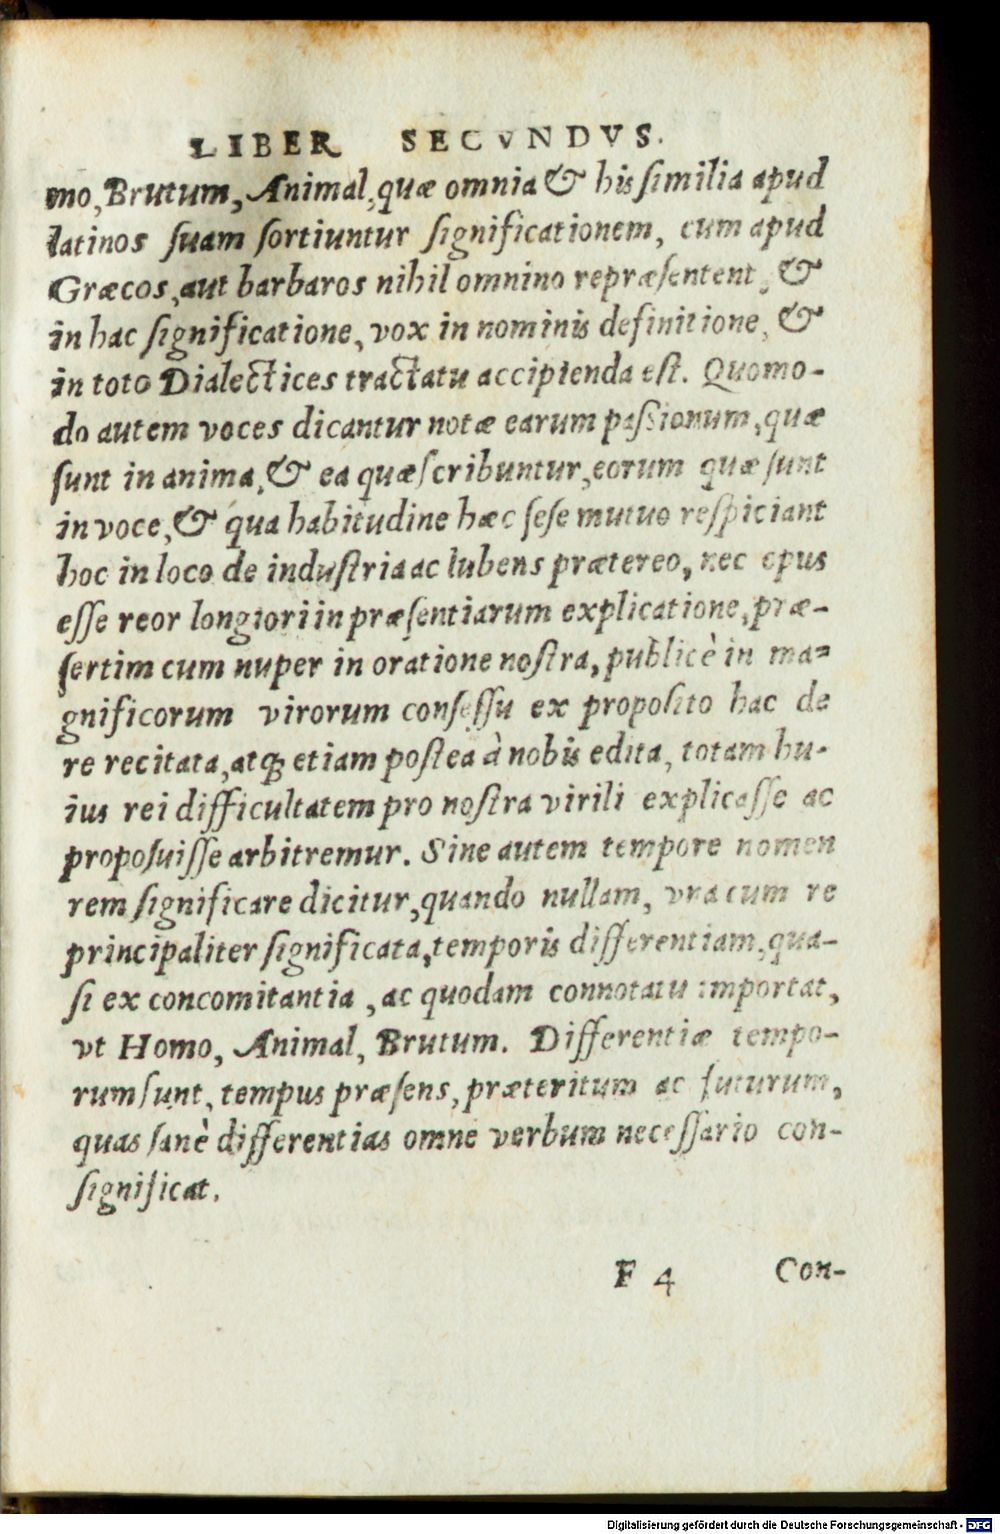 LIBER SECVNDVS.
mo, Brutum, Animal, quæ omnia & his ſimilia apud
latinos ſuam ſortiuntur ſignificationem, cum apud
Græcos, aut barbaros nihil omnino repræſentent, &
in hac ſignificatione, vox in nominis definitione, &
in toto Dialectices tractatu accipienda eſt. Quomo-
do autem voces dicantur notæ earum paſsionum, quæ
ſunt in anima, & ea quæ ſcribuntur, eorum quæ ſunt
in voce, & qua habitudine hæc ſeſe mutuo reſpiciant
hoc in loco de induſtria ac lubens prætereo, nec opus
eſſe reor longiori in præſentiarum explicatione, præ-
ſertim cum nuper in oratione noſtra, publicè in ma-
gnificorum virorum conſeſſu ex propoſito hac de
re recitata, atqꝫ etiam poſtea à nobis edita, totam hu-
ius rei difficultatem pro noſtra virili explicaſſe ac
propoſuiſſe arbitremur. Sine autem tempore nomen
rem ſignificare dicitur, quando nullam, vna cum re
principaliter ſignificata, temporis differentiam, qua-
ſi ex concomitantia, ac quodam connotatu importat,
vt Homo, Animal, Brutum. Differentiæ tempo-
rum ſunt, tempus præſens, præteritum ac futurum,
quas ſanè differentias omne verbum neceſſario con-
ſignificat.
F 4 Con-
Digitalisierung gefördert durch die Deutsche Forschungsgemeinschaft - DFG